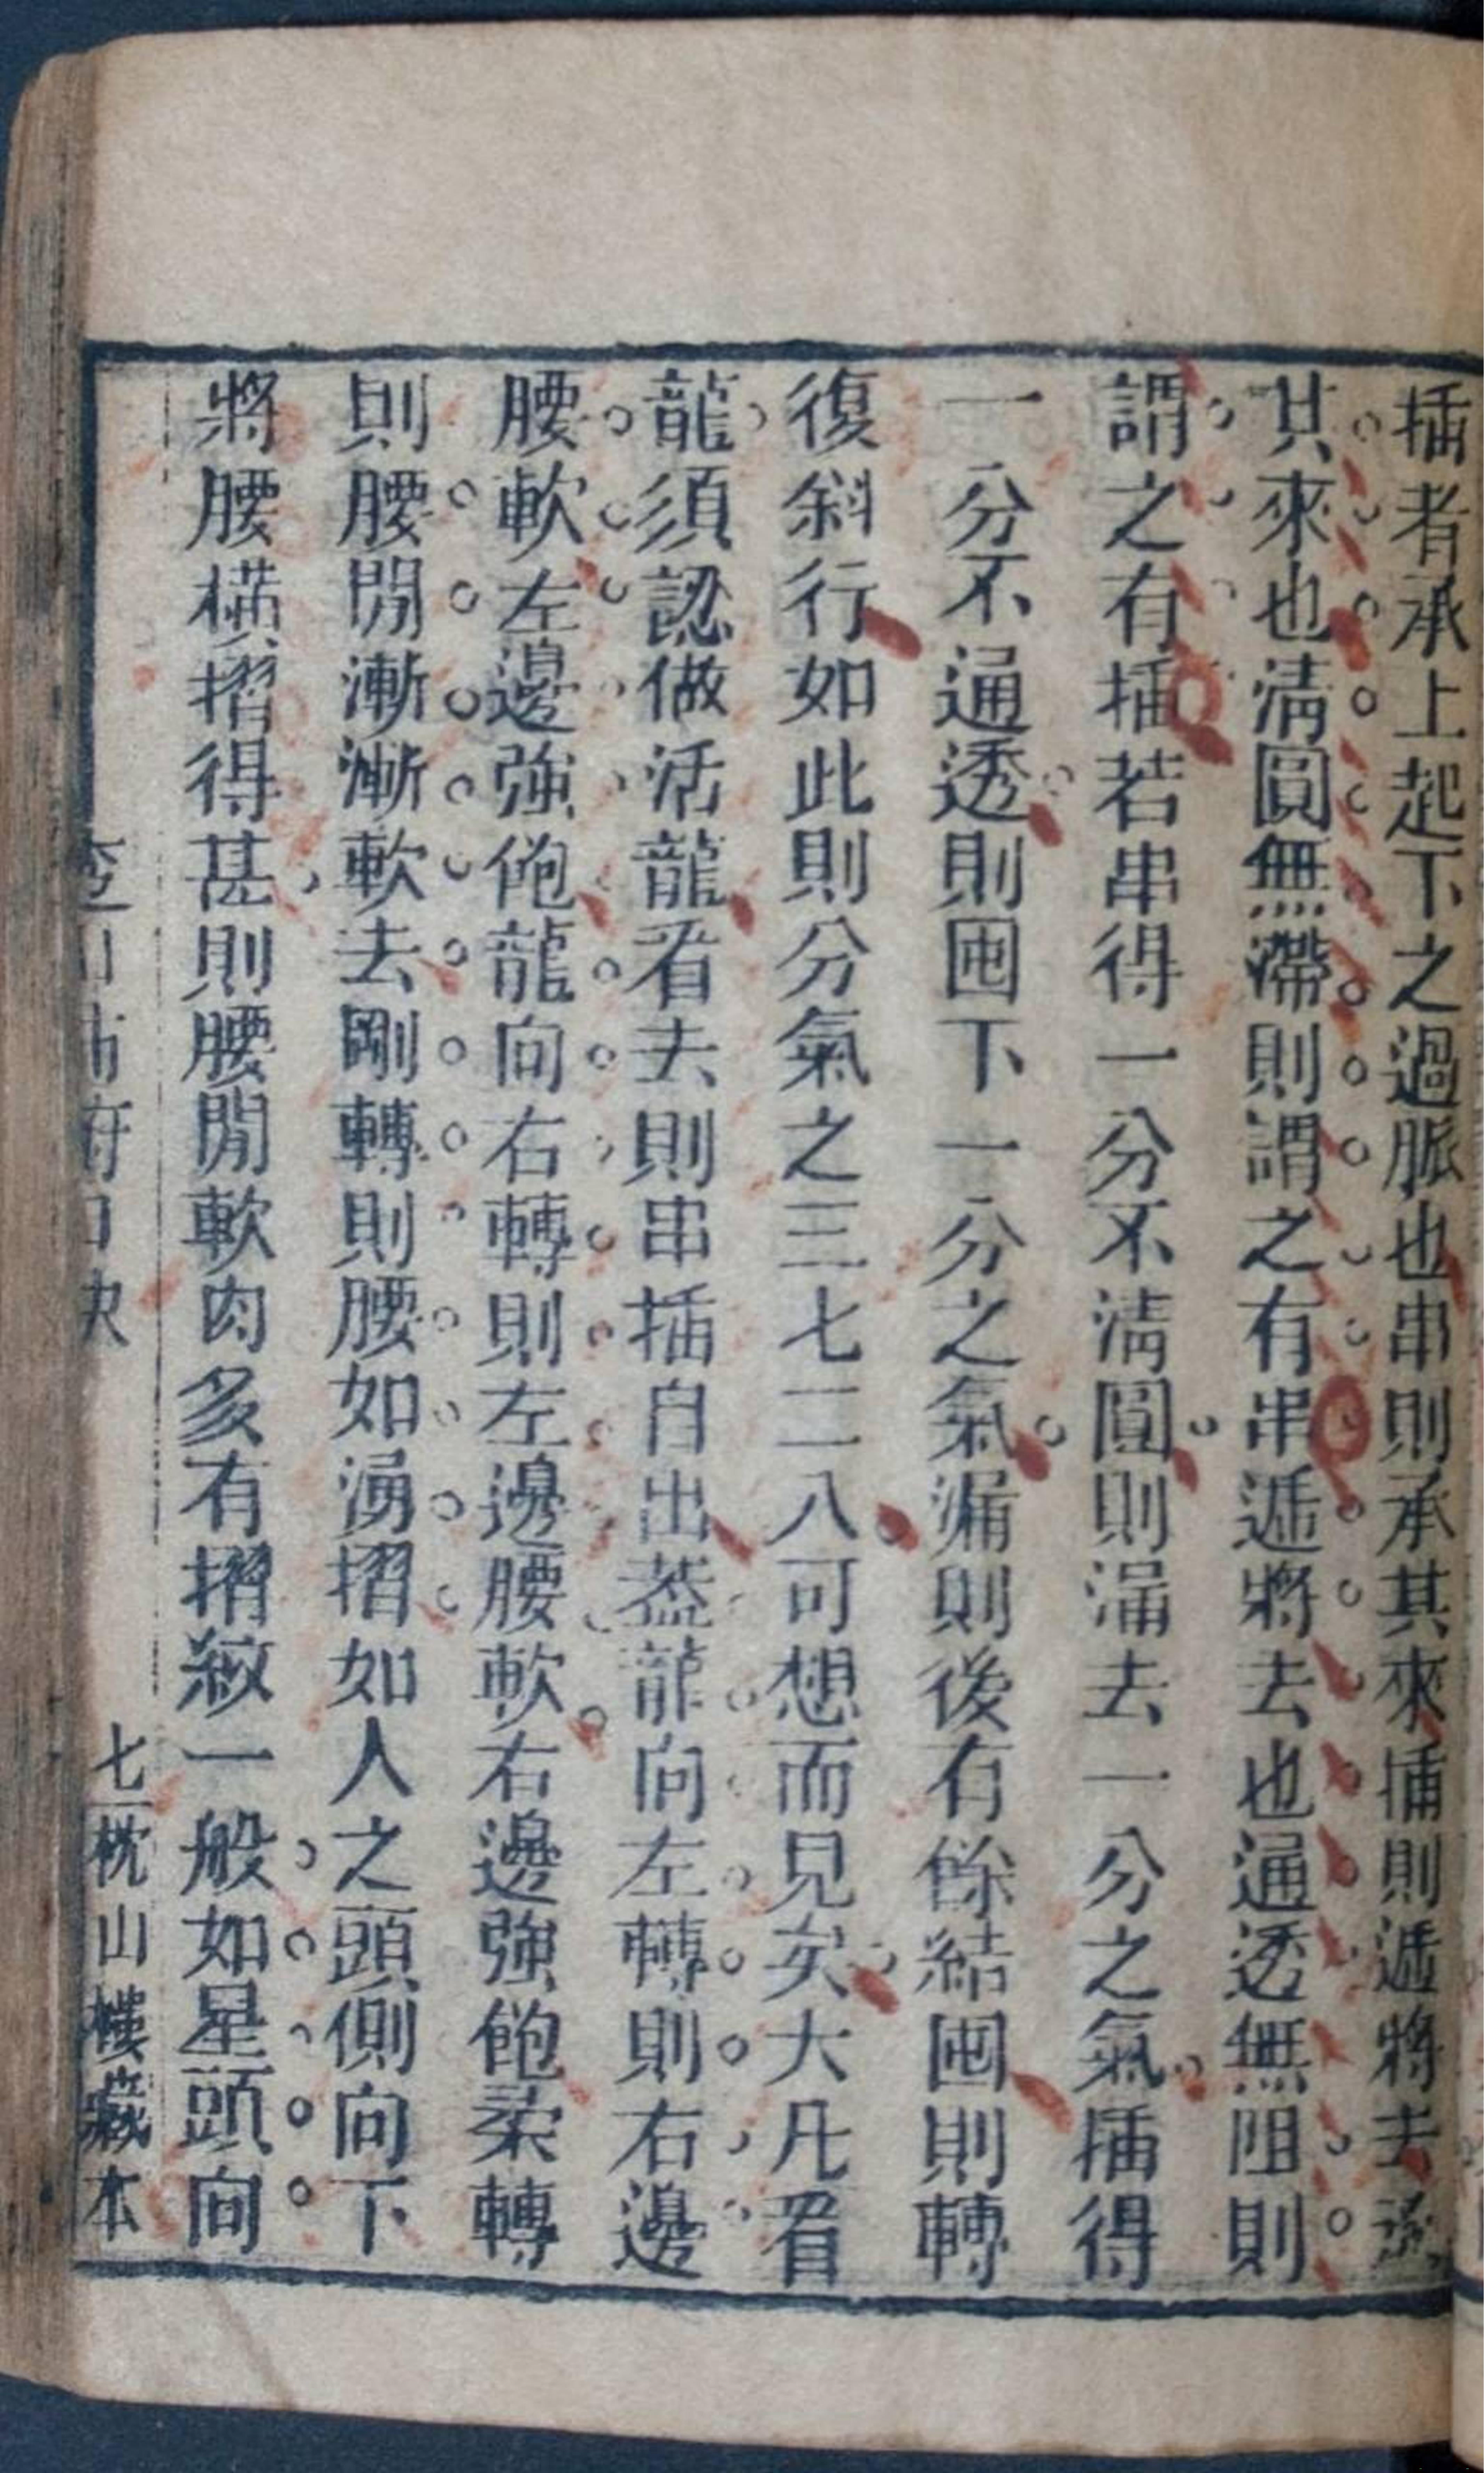 插者承上起下之過脈也串則承其來插則遞將去承
其來也清圓無滯則謂之有串遞將去也通透無阻則
謂之有插若串得一分不清圓則漏去一分之氣插得
一分不通透則囤下一分之氣漏則後有餘結囤則轉
復斜行如此則分氣之三七二八可想而見矣大凡看
龍須認做活龍看去則串插自出葢龍向左轉則右邊
腰軟左邊強飽龍向右轉則左邊腰軟右邊強飽柔轉
則腰閒漸漸軟去剛轉則腰如湧摺如人之頭側向下
將腰橫摺得甚則腰閒軟肉多有摺紋一般如星頭向
七 枕山樓藏本